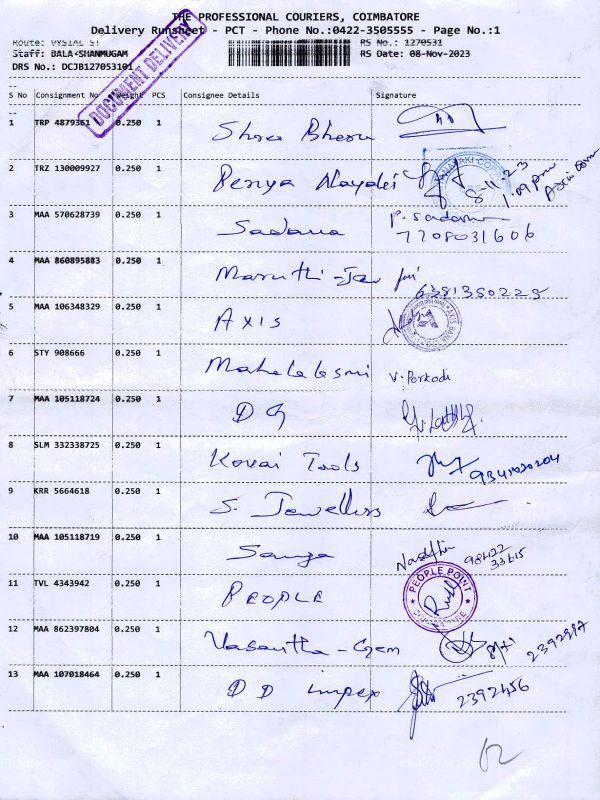 THE PROFESSIONAL COURIERS, COIMBATORE
Delivery Runsheet - PCT - Phone No.:0422-3505555 - Page No.:1
Route: VYSIAL ST RS No.: 1270531
Staff: BALA SHANMUGAM RS Date: 08-Nov-2023
DRS No.: DCJB127053101
DOCUMENT DELIVERY
S No Consignment No Weight PCS Consignee Details Signature
1 TRP 4879361 0.250 1 Shree Bheru
2 TRZ 130009927 0.250 1 Periya Nayaki 8-11-23 1.09 pm
3 MAA 570628739 0.250 1 Sadana P. Sadana
7708031606
4 MAA 860895883 0.250 1 Maruthi-Jew
6381380228
5 MAA 106348329 0.250 1 AXIS AXIS BANK
6 STY 908666 0.250 1 Mahalakshmi V. Porkodi
7 MAA 105118724 0.250 1 DG
8 SLM 332338725 0.250 1 Kovai Tools
9 KRR 5664618 0.250 1 S. Jewellers
10 MAA 105118719 0.250 1 98422
33615
11 TVL 4343942 0.250 1 PEOPLE PEOPLE POINT
12 MAA 862397804 0.250 1 Vasantha-Gem
13 MAA 107018464 0.250 1 DD impex 2392456